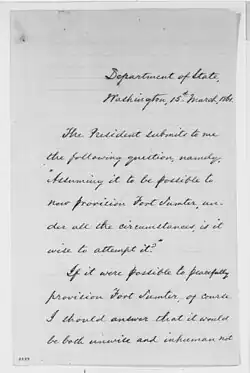 Department of State,
Washington, 15th March, 1861.
The President submits to me
the following question, namely,
"Assuming it to be possible to
now provision Fort Sumter, un-
der all the circumstances, is it
wise to attempt it?"
If it were possible to peacefully
provision Fort Sumter, of course
I should answer that it would
be both unwise and inhuman not